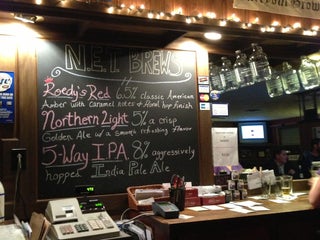 N.E.I BREWS
Roedy's Red 6.5% classic American
Amber with caramel notes + floral hop finish
Northern Light 5% a crisp
Golden Ale w/ a smooth refreshing flavor
5-Way I.P.A. 8% aggressively
hopped India Pale Ale